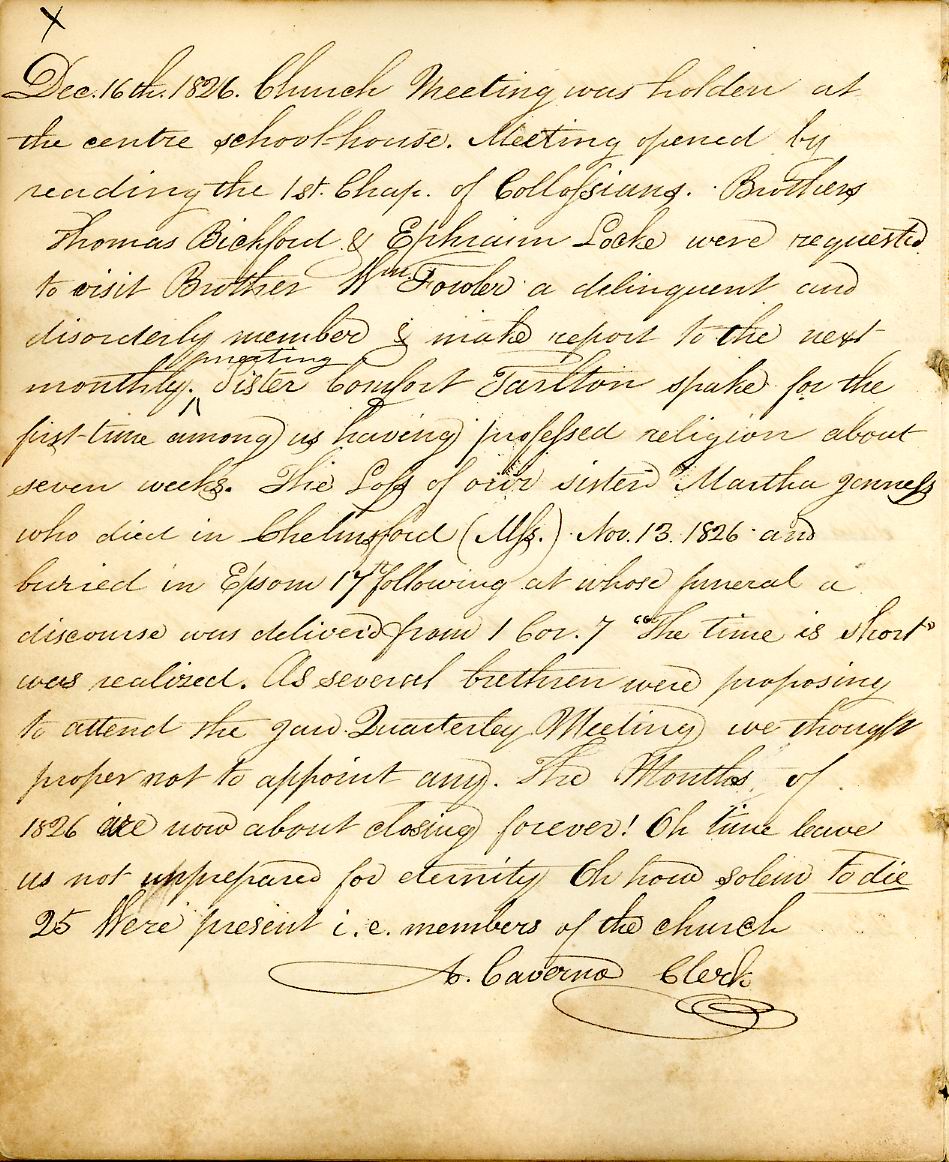 X
Dec. 16th. 1826. Church Meeting was holden at
the centre school-house. Meeting opened by
reading the 1st. Chap. of Collossians. Brothers
Thomas Bickford & Ephraim Locke were requested
to visit Brother Wm Fowler a delinquent and
disorderly member & make report to the next
meeting
monthly. ^ Sister Comfort Tarlton spake for the
first-time among us having professed religion about
seven weeks. The Loss of our sister Martha Jenness
who died in Chelmsford (Mss.) Nov. 13. 1826 and
buried in Epsom 17th following at whose funeral a
discourse was deliver'd from 1 Cor. 7 "The time is short"
was realized. As several brethren were proposing
to attend the Quarterley Meeting we thought
proper not to appoint any. The Months of
1826 are now about closing forever! Oh time leave
us not unprepared for eternity Oh how solem to die
25 Were present i.e. members of the church
A. Caverno Clerk